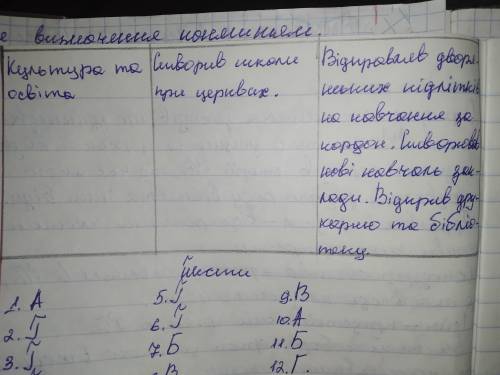 е визначення поняттям.
Культура та
освіта
Створив школи
при церквах.
Відправляв дворян-
ських підлітків
на навчання за
кордон. Створював
нові навчаль зак-
лади. Відкрив дру-
карню та бібліо-
теку.
Тести
1. А
2. Г
3. Г
5. Г
6. Г
7. Б
9. В
10. А
11. Б
12. Г.